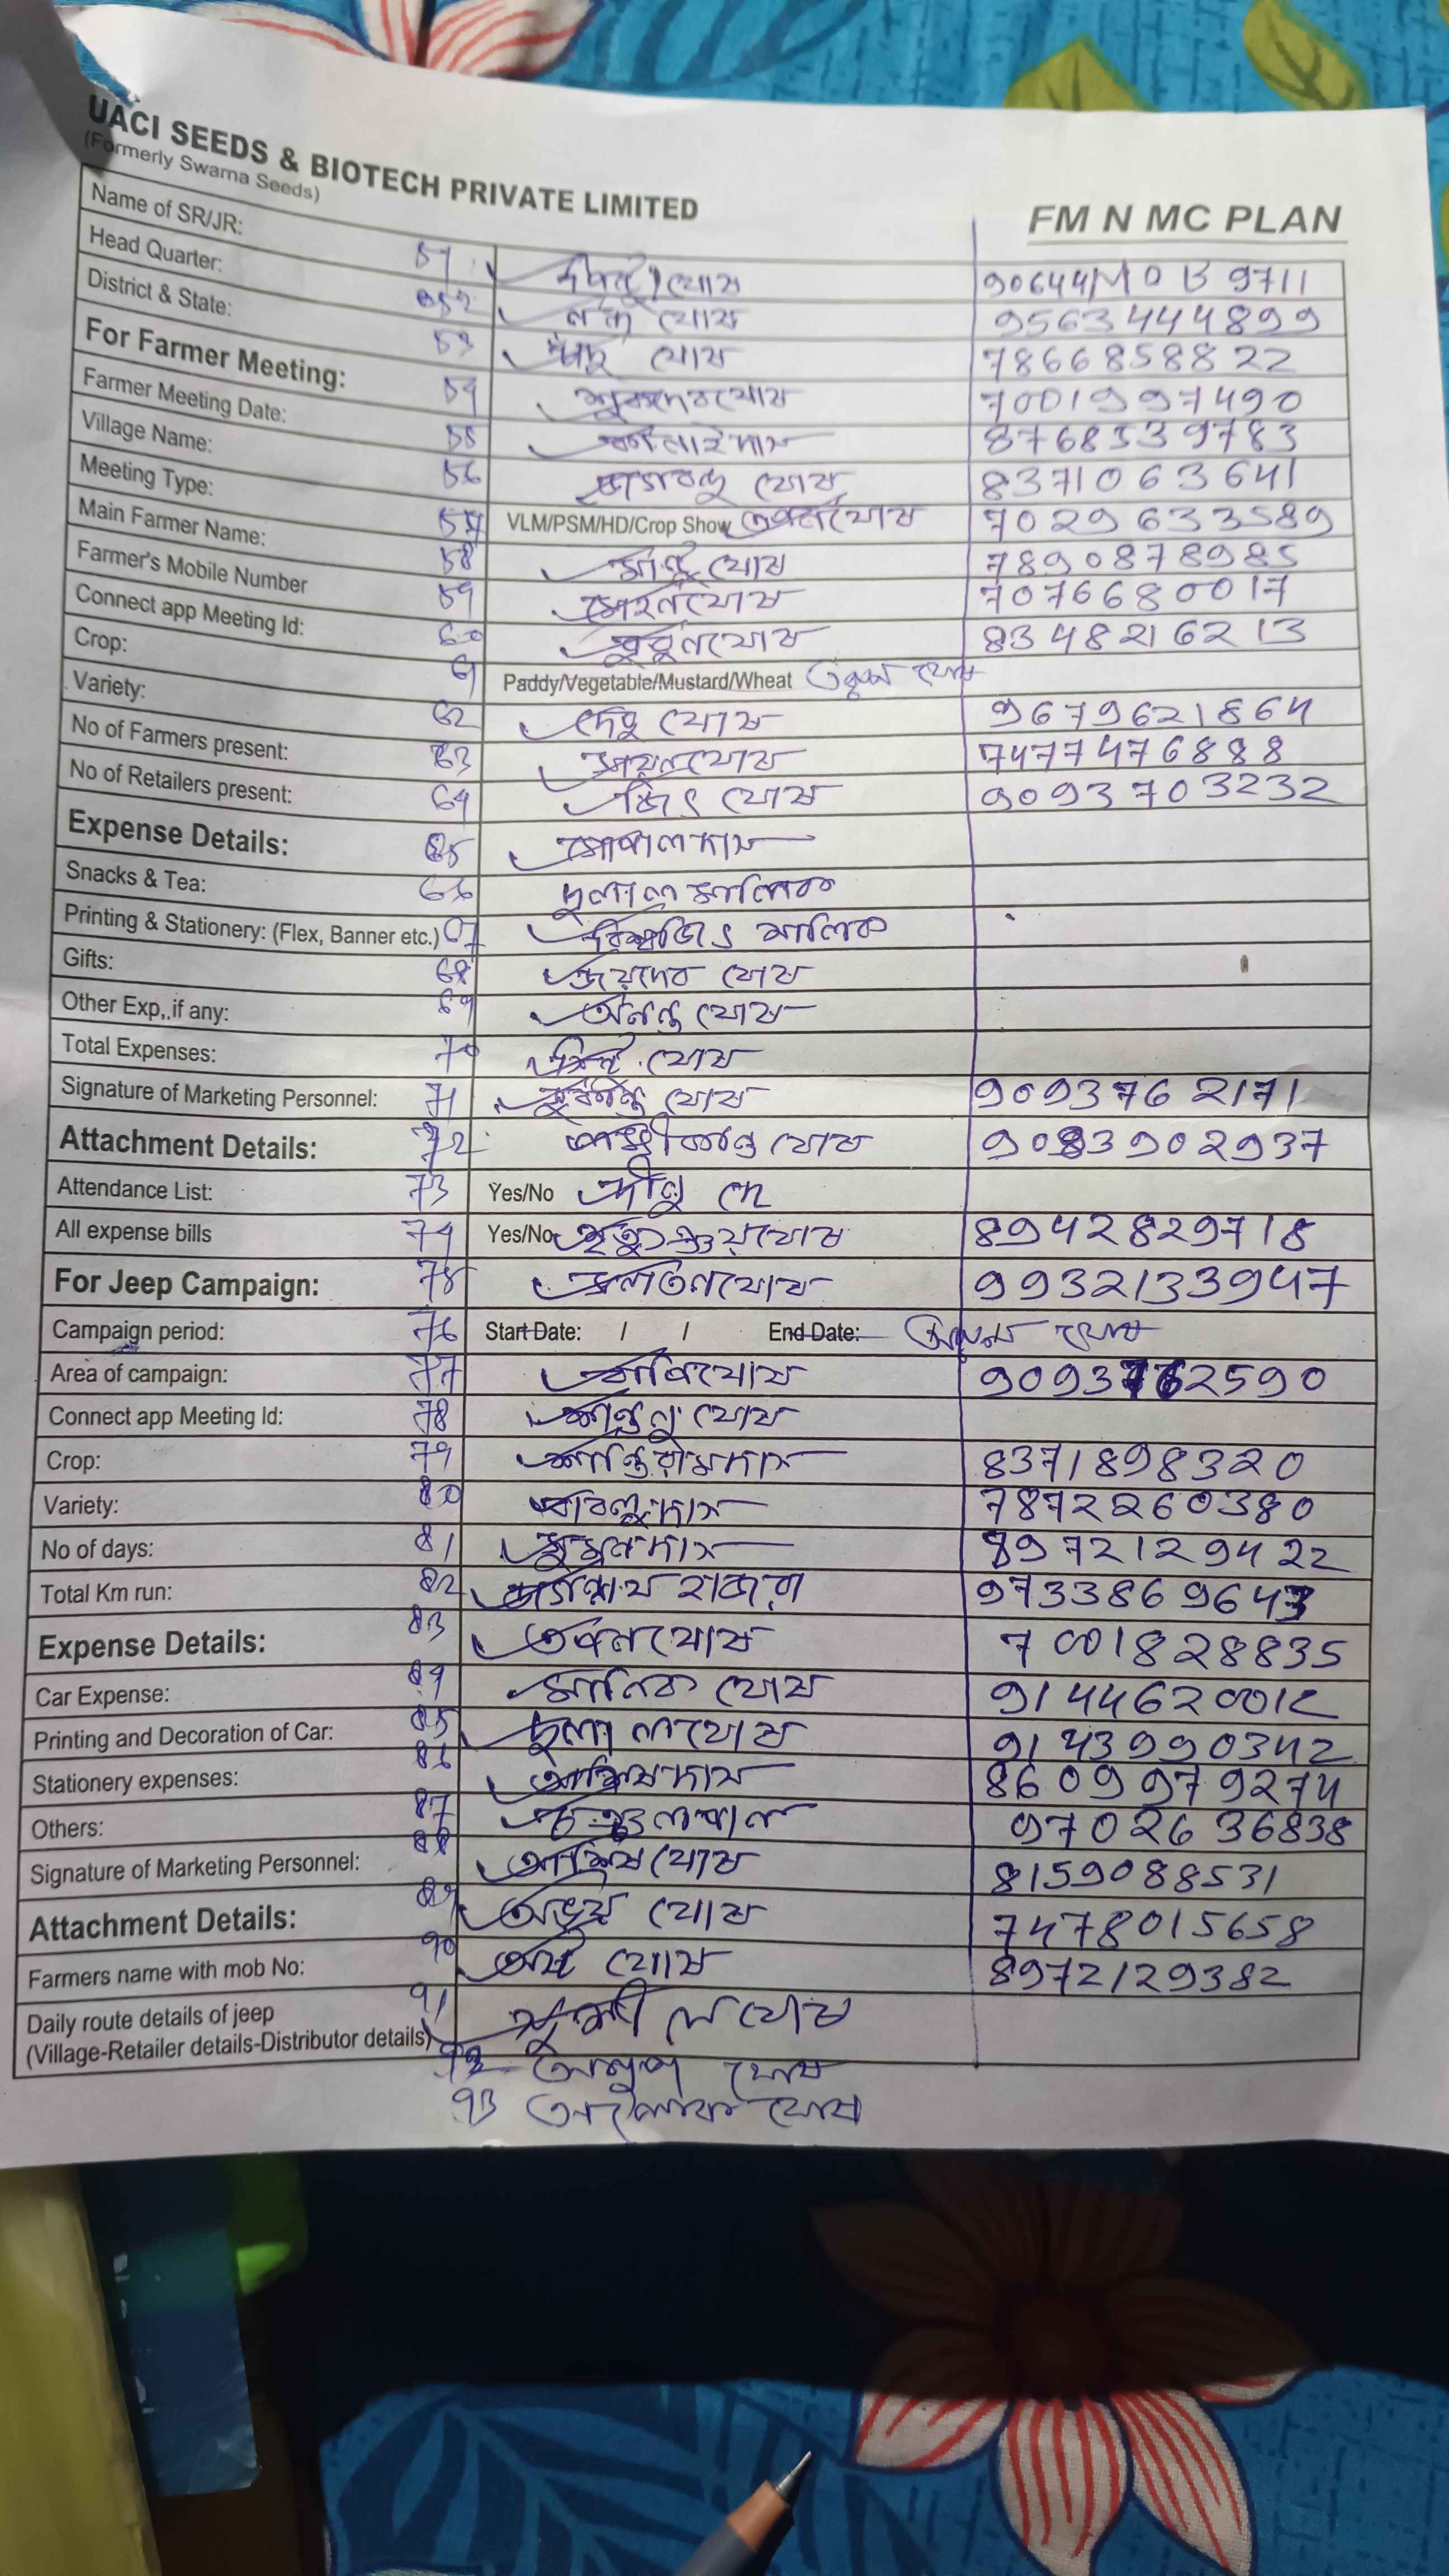 UACI SEEDS & BIOTECH PRIVATE LIMITED
(Formerly Swarna Seeds)
FM N MC PLAN
Name of SR/JR:
Head Quarter: 51 ঘোষ 90644 MOB 9711
District & State: 52 ঘোষ 9563444899
For Farmer Meeting: 53 ঘোষ 7866858822
Farmer Meeting Date: 54 শুকদেব ঘোষ 7001997490
Village Name: 55 কানাই দাস 8768339783
Meeting Type: 56 জগবন্ধু ঘোষ 8371063641
Main Farmer Name: 57 VLM/PSM/HD/Crop Show তপন ঘোষ 7029633589
Farmer's Mobile Number 58 ঘোষ 7890878985
Connect app Meeting Id: 59 ঘোষ 7076680017
Crop: 60 ঘোষ 8348216213
Variety: 61 Paddy/Vegetable/Mustard/Wheat তরুন ঘোষ
No of Farmers present: 62 দেবু ঘোষ 9679621864
No of Retailers present: 63 ঘোষ 7477476888
Expense Details: 64 জিৎ ঘোষ 9093703232
Snacks & Tea: 65 গোপাল দাস
Printing & Stationery: (Flex, Banner etc.) 66 দুলাল মালিক
Gifts: 67 বিশ্বজিৎ মালিক
Other Exp,.if any: 68 জয়দেব ঘোষ
69 অনন্ত ঘোষ
Total Expenses: 70 ঘোষ
Signature of Marketing Personnel: 71 ঘোষ 9093762171
Attachment Details: 72 লক্ষ্মীকান্ত ঘোষ 9083902937
Attendance List: 73 Yes/No দীলু দে
All expense bills 74 Yes/No মৃত্যুঞ্জয় ঘোষ 8942829718
For Jeep Campaign: 75 ঘোষ 9932133947
Campaign period: 76 Start Date: / / End Date: ঘোষ
Area of campaign: 77 ঘোষ 9093762590
Connect app Meeting Id: 78 শান্তনু ঘোষ
Crop: 79 শান্তিরাম দাস 8371898320
Variety: 80 বাবলু দাস 7872260380
No of days: 81 সুমন দাস 8972129422
Total Km run: 82 জগন্নাথ হাজরা 9733869643
Expense Details: 83 তপন ঘোষ 7001828835
Car Expense: 84 মানিক ঘোষ
Printing and Decoration of Car: 85 দুলাল ঘোষ 9143990342
Stationery expenses: 86 আশিষ দাস 8609979274
Others: 87 পাল 9702636838
Signature of Marketing Personnel: 88 আশিষ ঘোষ 8159088531
Attachment Details: 89 অভয় ঘোষ 7478015658
Farmers name with mob No: 90 ঘোষ 8972129382
Daily route details of jeep 91 সুশীল ঘোষ
(Village-Retailer details-Distributor details)
92 ঘোষ
93 ঘোষ